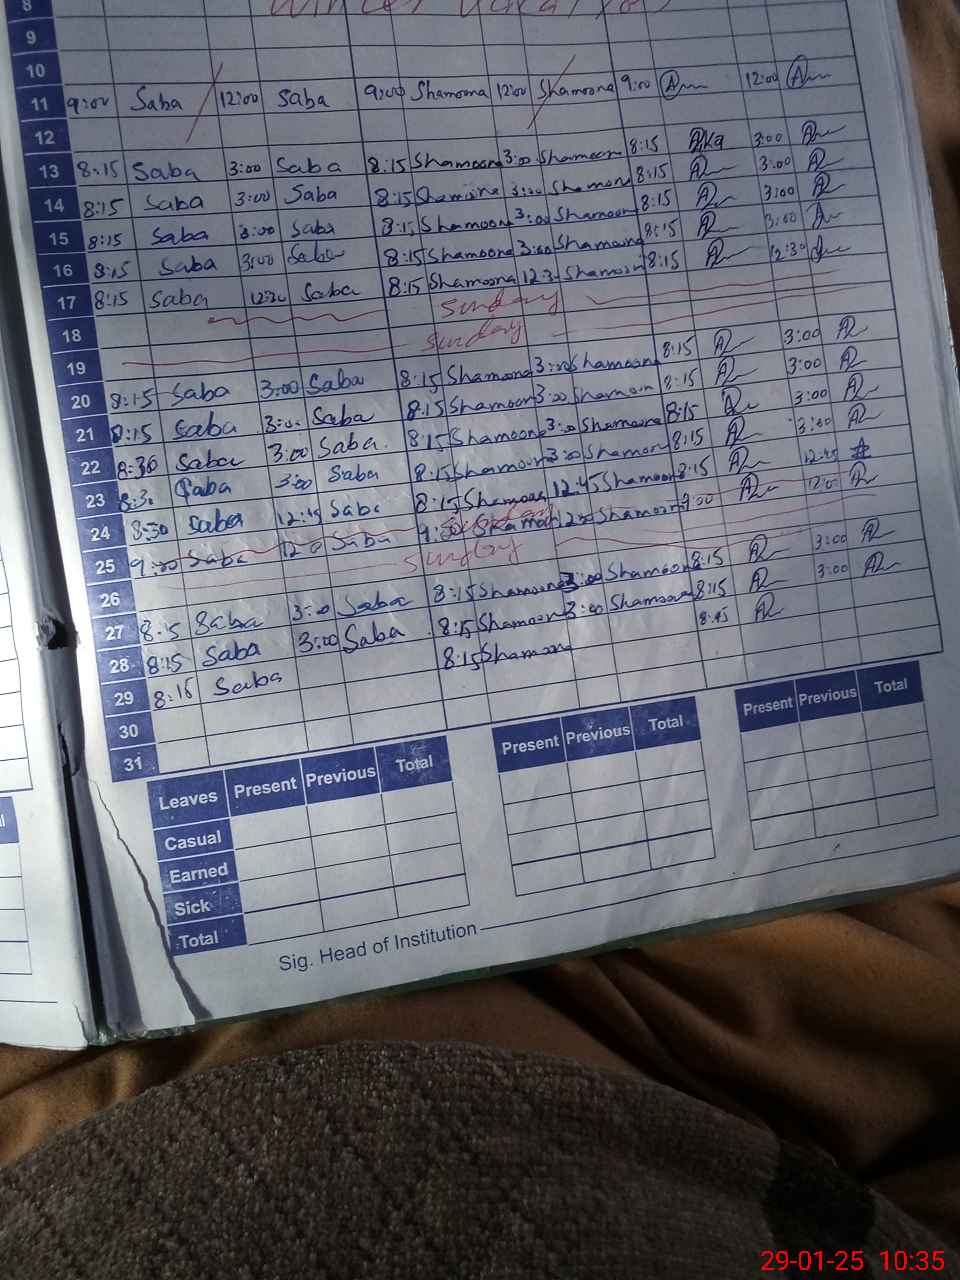 8 Winter Vacation
9
10
11 9:00 Saba 12:00 Saba 9:00 Shamoona 12:00 Shamoona 9:00 12:00
12
13 8:15 Saba 3:00 Saba 8:15 Shamoona 3:00 Shamoona 8:15 3:00
14 8:15 Saba 3:00 Saba 8:15 Shamoona 3:00 Shamoona 8:15 3:00
15 8:15 Saba 3:00 Saba 8:15 Shamoona 3:00 Shamoona 8:15 3:00
16 8:15 Saba 3:00 Saba 8:15 Shamoona 3:00 Shamoona 8:15 3:00
17 8:15 Saba 12:30 Saba 8:15 Shamoona 12:30 Shamoona 8:15 12:30
Sunday
18 Sunday
19
20 8:15 Saba 3:00 Saba 8:15 Shamoona 3:00 Shamoona 8:15 3:00
21 8:15 Saba 3:00 Saba 8:15 Shamoona 3:00 Shamoona 8:15 3:00
22 8:30 Saba 3:00 Saba 8:15 Shamoona 3:00 Shamoona 8:15 3:00
23 8:30 Saba 3:00 Saba 8:15 Shamoona 3:00 Shamoona 8:15 3:00
24 8:30 Saba 12:45 Saba 8:15 Shamoona 12:45 Shamoona 8:15 12:45
25 9:00 Saba 12:00 Saba 9:00 Shamoona 12:00 Shamoona 9:00 12:00
26 Sunday
27 8:15 Saba 3:00 Saba 8:15 Shamoona 3:00 Shamoona 8:15 3:00
28 8:15 Saba 3:00 Saba 8:15 Shamoona 3:00 Shamoona 8:15 3:00
29 8:15 Saba 8:15 Shamoona 8:45
30
31
Leaves Present Previous Total Present Previous Total Present Previous Total
Casual
Earned
Sick
Total
Sig. Head of Institution
29-01-25 10:35